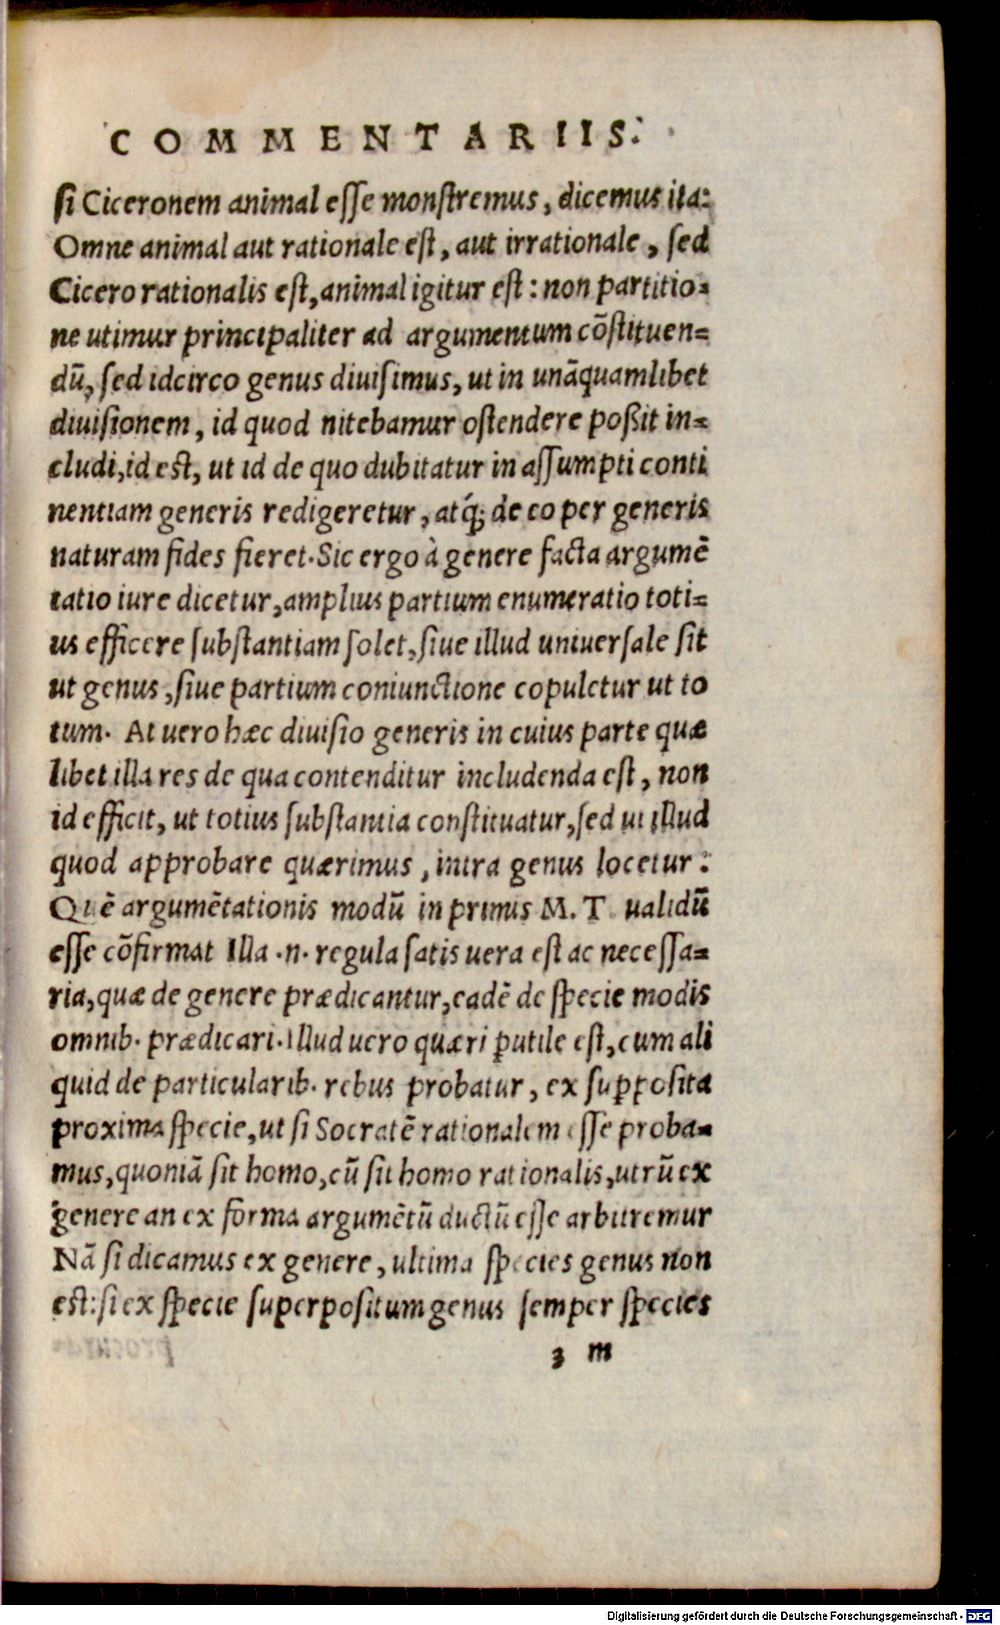 COMMENTARIIS.
si Ciceronem animal esse monstremus, dicemus ita:
Omne animal aut rationale est, aut irrationale, sed
Cicero rationalis est, animal igitur est: non partitio-
ne utimur principaliter ad argumentum cōstituen-
dū, sed idcirco genus diuisimus, ut in unāquamlibet
diuisionem, id quod nitebamur ostendere poßit in-
cludi, id est, ut id de quo dubitatur in assumpti conti
nentiam generis redigeretur, atq́; de eo per generis
naturam fides fieret. Sic ergo à genere facta argumē
tatio iure dicetur, amplius partium enumeratio toti-
us efficere substantiam solet, siue illud uniuersale sit
ut genus, siue partium coniunctione copuletur ut to
tum. At uero hæc diuisio generis in cuius parte quæ
libet illa res de qua contenditur includenda est, non
id efficit, ut totius substantia constituatur, sed ut illud
quod approbare quærimus, intra genus locetur:
Quē argumētationis modū in primis M. T. ualidū
esse cōfirmat Illa .n. regula satis uera est ac necessa-
ria, quæ de genere prædicantur, eadē de specie modis
omnib. prædicari. Illud uero quæri ꝑutile est, cum ali
quid de particularib. rebus probatur, ex supposita
proxima specie, ut si Socratē rationalem esse proba-
mus, quoniā sit homo, cū sit homo rationalis, utrū ex
genere an ex forma argumētū ductū esse arbitremur
Nā si dicamus ex genere, ultima species genus non
est: si ex specie superpositum genus semper species
3 m
Digitalisierung gefördert durch die Deutsche Forschungsgemeinschaft - DFG